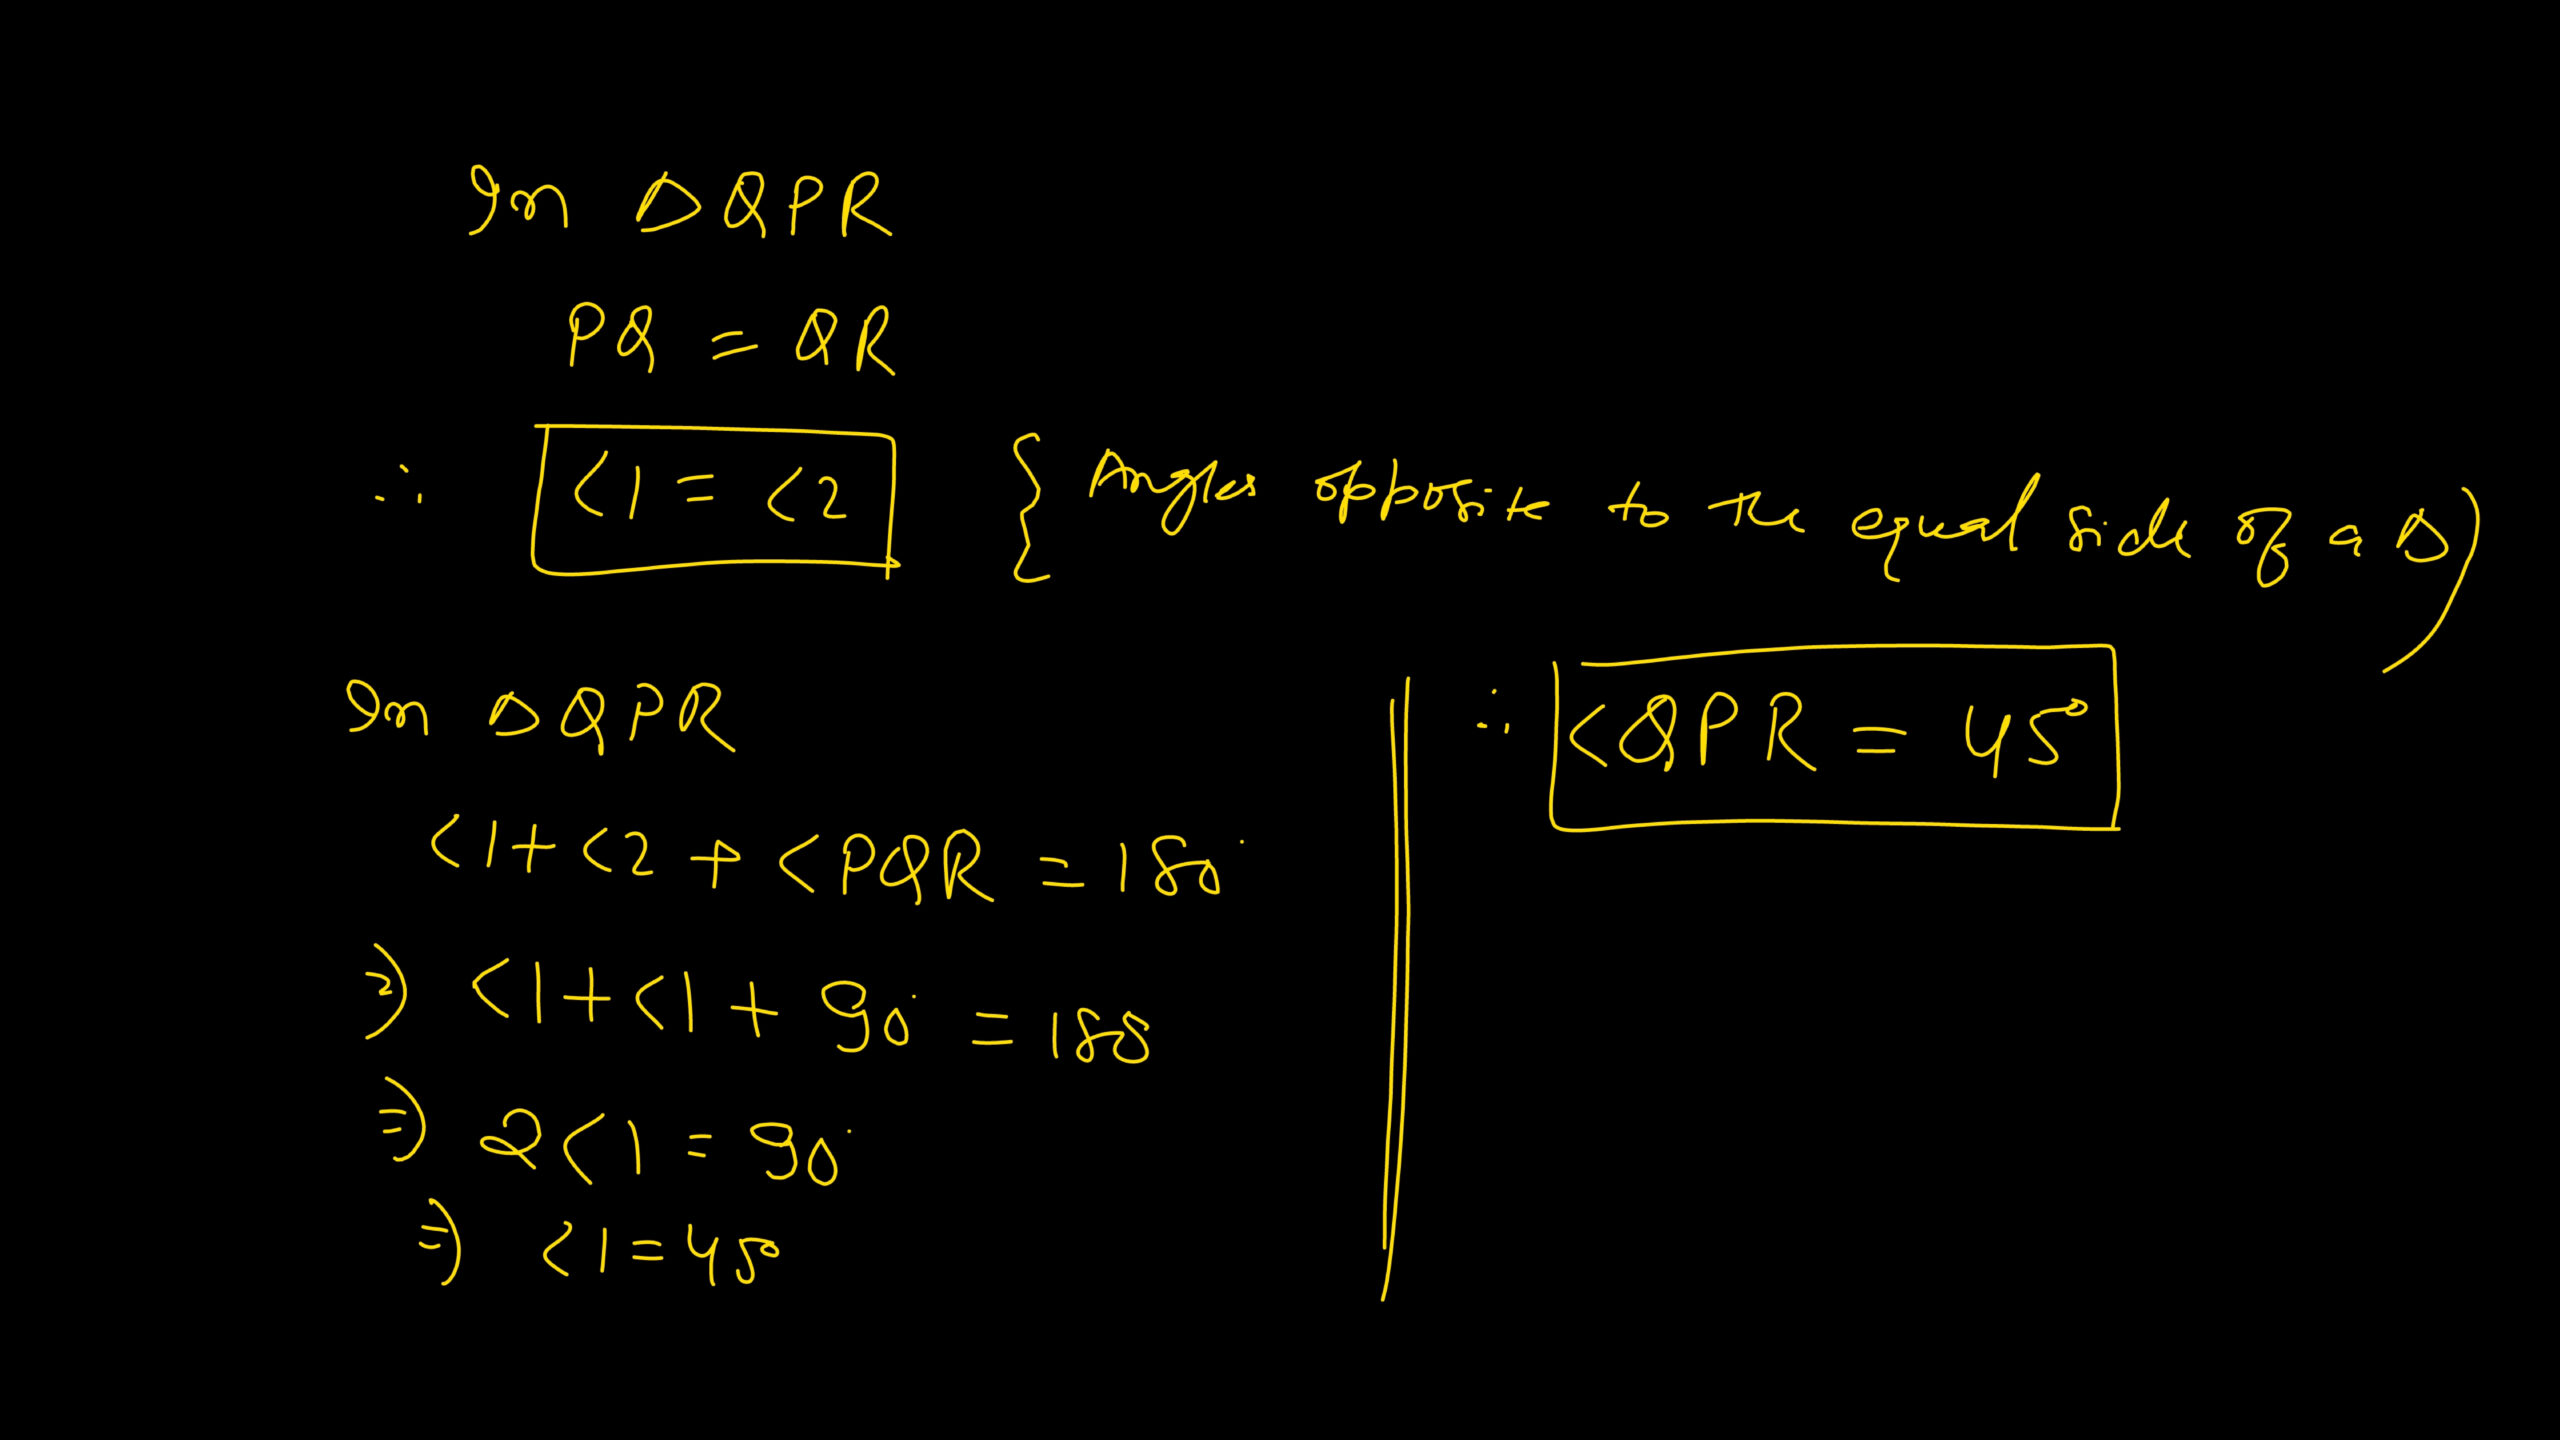 In △QPR
PQ = QR
∴ <1 = <2 { Angles opposite to the equal side of a △)
In △QPR
<1 + <2 + <PQR = 180°
⇒ <1 + <1 + 90° = 180
⇒ 2<1 = 90°
⇒ <1 = 45°
∴ <QPR = 45°